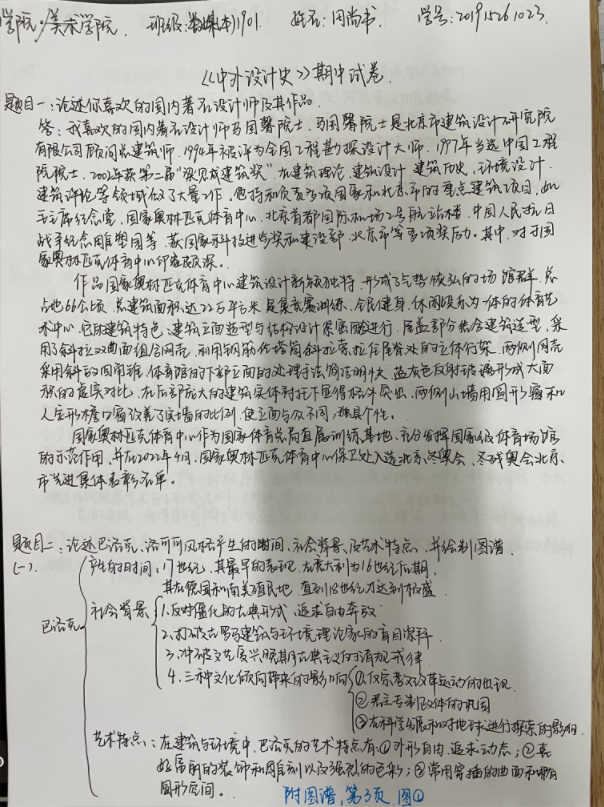 学院：美术学院 班级：数媒(本)1901. 姓名：闫尚书 学号：201915261023.
《中外设计史》期中试卷.
题目一：论述你喜欢的国内著名设计师及其作品.
答：我喜欢的国内著名设计师马国馨院士，马国馨院士是北京市建筑设计研究院
有限公司顾问总建筑师，1994年被评为全国工程勘探设计大师，1997年当选中国工程
院院士，2002年获第二届"梁思成建筑奖"在建筑理论、建筑设计、建筑历史、环境设计、
建筑评论等领域做了大量工作，他主持和负责多项国家和北京市的重点建筑项目，如
毛主席纪念堂、国家奥林匹克体育中心、北京首都国际机场2号航站楼、中国人民抗日
战争纪念雕塑园等，获国家科技进步奖和建设部、北京市等多项奖励。其中，对于国
家奥林匹克体育中心印象颇深。
作品国家奥林匹克体育中心建筑设计新颖独特，形成了气势恢弘的场馆群，总
占地66公顷，总建筑面积达22万平方米是集竞赛训练、全民健身、休闲娱乐为一体的体育艺
术中心，它的建筑特色：建筑立面造型与结构设计紧密配合进行，屋盖部分结合建筑造型，采
用了斜拉双曲面组合网壳，利用钢筋砼塔筒斜拉索拉住屋脊处的立体行架，两侧网壳
采用斜放四角锥，体育馆的下部立面的处理手法简洁明快，蓝灰色反射玻璃形成大面
积的虚实对比，在后部庞大的建筑实体衬托下显得格外突出，两侧山墙用圆形窗和
八字形檐口窗改善了实墙的比例，使立面与众不同，独具个性。
国家奥林匹克体育中心作为国家体育总局直属训练基地，充分发挥国家级体育场馆
的示范作用，并在2022年4月，国家奥林匹克体育中心保卫处入选北京冬奥会、冬残奥会北京
市先进集体表彰名单。
题目二：论述巴洛克、洛可可风格产生的时间、社会背景及艺术特点，并绘制图谱.
(一).
巴洛克
产生的时间：17世纪，其最早的表现，在意大利为16世纪后期，
其在德国和南美殖民地，直到18世纪才达到极盛.
社会背景 1.反对僵化的古典形式，追求自由奔放
2.打破古罗马建筑与环境理论家的盲目崇拜
3.冲破文艺复兴晚期古典主义的清规戒律
4.三种文化倾向带来的影响 ①反宗教改革运动的出现
②君主专制政体的巩固
③在科学发展和对地球进行探索的影响
艺术特点：在建筑与环境中，巴洛克的艺术特点有①外形自由，追求动态；②喜
好富丽的装饰和雕刻以及强烈的色彩；③常用穿插的曲面和椭
圆形空间.
附图谱，第3页 图①